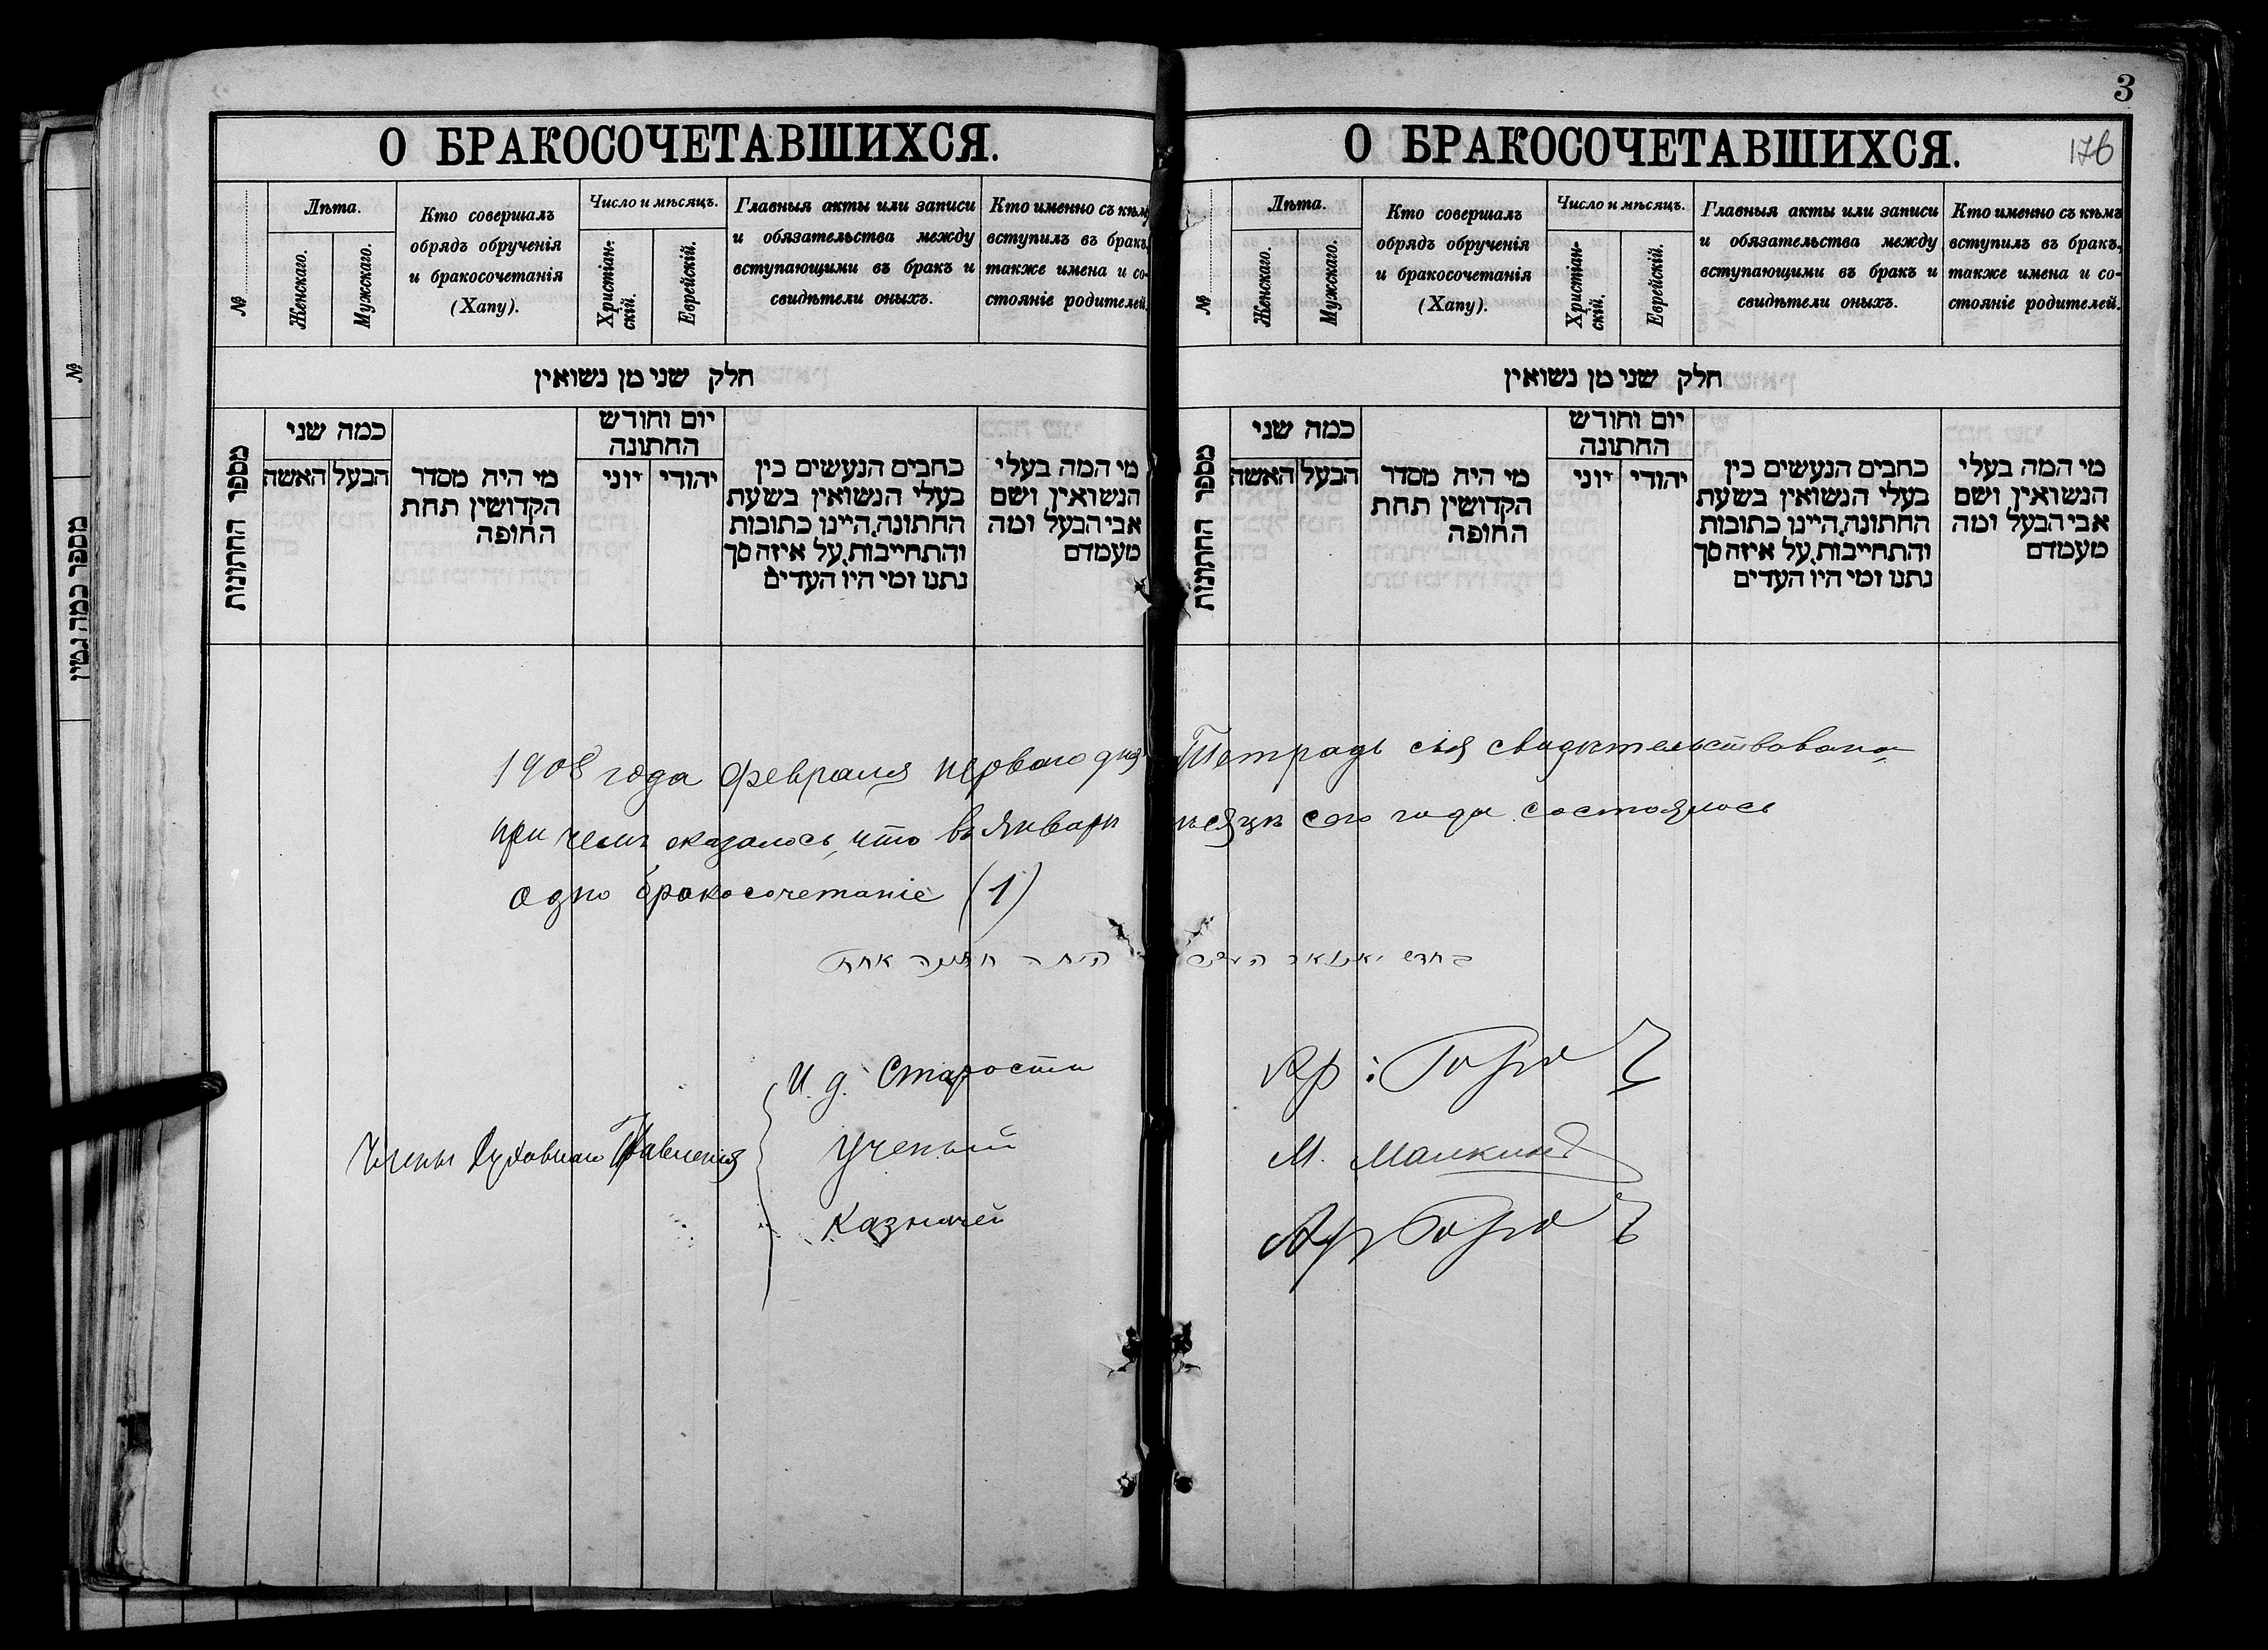 3
176
О БРАКОСОЧЕТАВШИХСЯ.
№
Лѣта.
Женскаго.
Мужскаго.
Кто совершалъ
обрядъ обрученія
и бракосочетанія
(Хапу).
Число и мѣсяцъ.
Христіан-
скій.
Еврейскій.
Главныя акты или записи
и обязательства между
вступающими въ бракъ и
свидѣтели оныхъ.
Кто именно съ кѣмъ
вступилъ въ бракъ,
также имена и со-
стояніе родителей.
חלק שני מן נשואין
מספר החתונות
כמה שני
האשה
הבעל
מי היה מסדר
הקדושין תחת
החופה
יום וחודש
החתונה
יוני
יהודי
כתבים הנעשים בין
בעלי הנשואין בשעת
החתונה, היינו כתובות
והתחייבות, על איזה סך
נתנו ומי היו העדים
מי המה בעלי
הנשואין ושם
אבי הבעל ומה
מעמדם
О БРАКОСОЧЕТАВШИХСЯ.
№
Лѣта.
Женскаго.
Мужскаго.
Кто совершалъ
обрядъ обрученія
и бракосочетанія
(Хапу).
Число и мѣсяцъ.
Христіан-
скій.
Еврейскій.
Главныя акты или записи
и обязательства между
вступающими въ бракъ и
свидѣтели оныхъ.
Кто именно съ кѣмъ
вступилъ въ бракъ,
также имена и со-
стояніе родителей.
חלק שני מן נשואין
מספר החתונות
כמה שני
האשה
הבעל
מי היה מסדר
הקדושין תחת
החופה
יום וחודש
החתונה
יוני
יהודי
כתבים הנעשים בין
בעלי הנשואין בשעת
החתונה, היינו כתובות
והתחייבות, על איזה סך
נתנו ומי היו העדים
מי המה בעלי
הנשואין ושם
אבי הבעל ומה
מעמדם
№
מספר כמה גטין
1908 года Февраля перваго дня Тетрадь сія свидѣтельствована,
при чемъ оказалось, что въ Январѣ мѣсяцѣ сего года состоялось
одно бракосочетаніе (1)
בחדש יאנואר היתה חתונה אחת
И. д. Старосты
Члены Духовнаго Правленія
Ученый
М. Малкинъ
Казначей